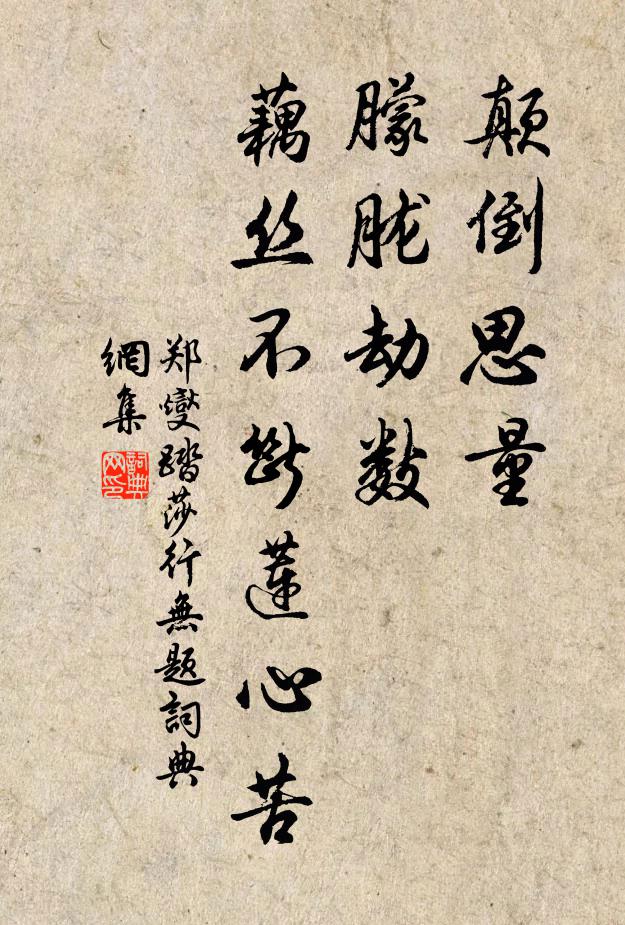 颠倒思量
朦胧劫数
藕丝不断莲心苦
郑燮踏莎行無题詞典
網集
詞典
网印